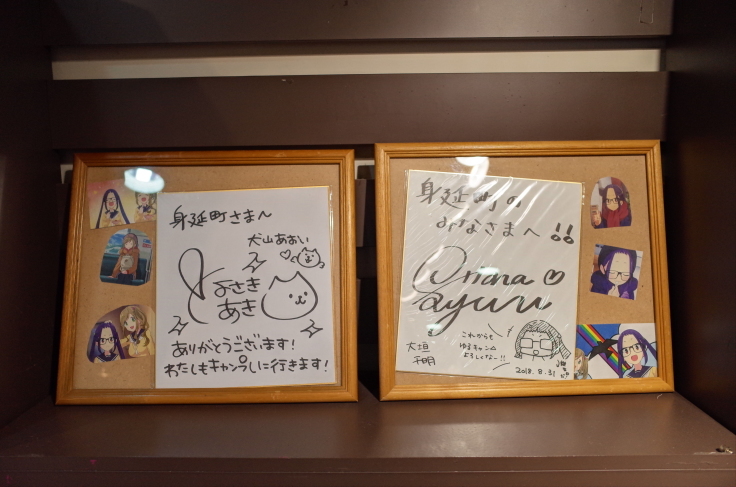 身延町さまへ
犬山あおい
とよさき
あき
ありがとうございます!
わたしもキャンプしに行きます!
身延町の
みなさまへ!!
大垣
千明
これからも
ゆるキャン△
よろしくなー!!
2018.8.31